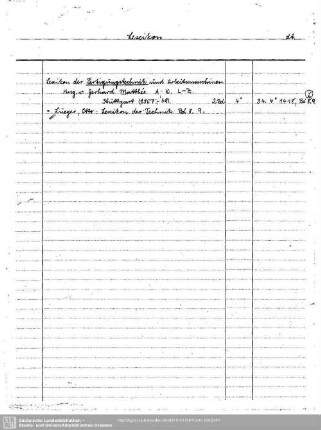 Lexikon 24.
Lexikon der Fertigungstechnik und Arbeitsmaschinen
Hrsg. v. Gerhard Matthée A-K, L-Z
Stuttgart (1967-68) 2 Bd. 4° 34. 4° 1418, Bd 8.9
= Lueger, Otto: Lexikon der Technik Bd 8. 9.
Sächsische Landesbibliothek -
Staats- und Universitätsbibliothek Dresden